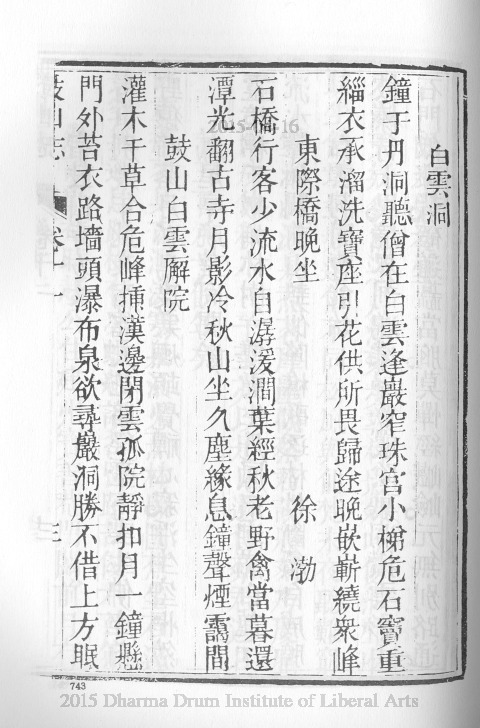 白雲洞
鐘于丹洞聽僧在白雲逢巖窄珠宮小梯危石竇重
緇衣承溜洗寶座引花供所畏歸途晚嵌嶄繞衆峰
東際橋晚坐 徐𤊹
石橋行客少流水自潺湲澗葉經秋老野禽當暮還
潭光翻古寺月影冷秋山坐久塵緣息鐘聲煙靄間
鼓山白雲廨院
灌木干草合危峰揷漢邊閉雲孤院靜扣月一鐘懸
門外苔衣路墻頭瀑布泉欲尋巖洞勝不借上方眠
鼓山志 卷十一 三
2015-06-16
743
2015 Dharma Drum Institute of Liberal Arts